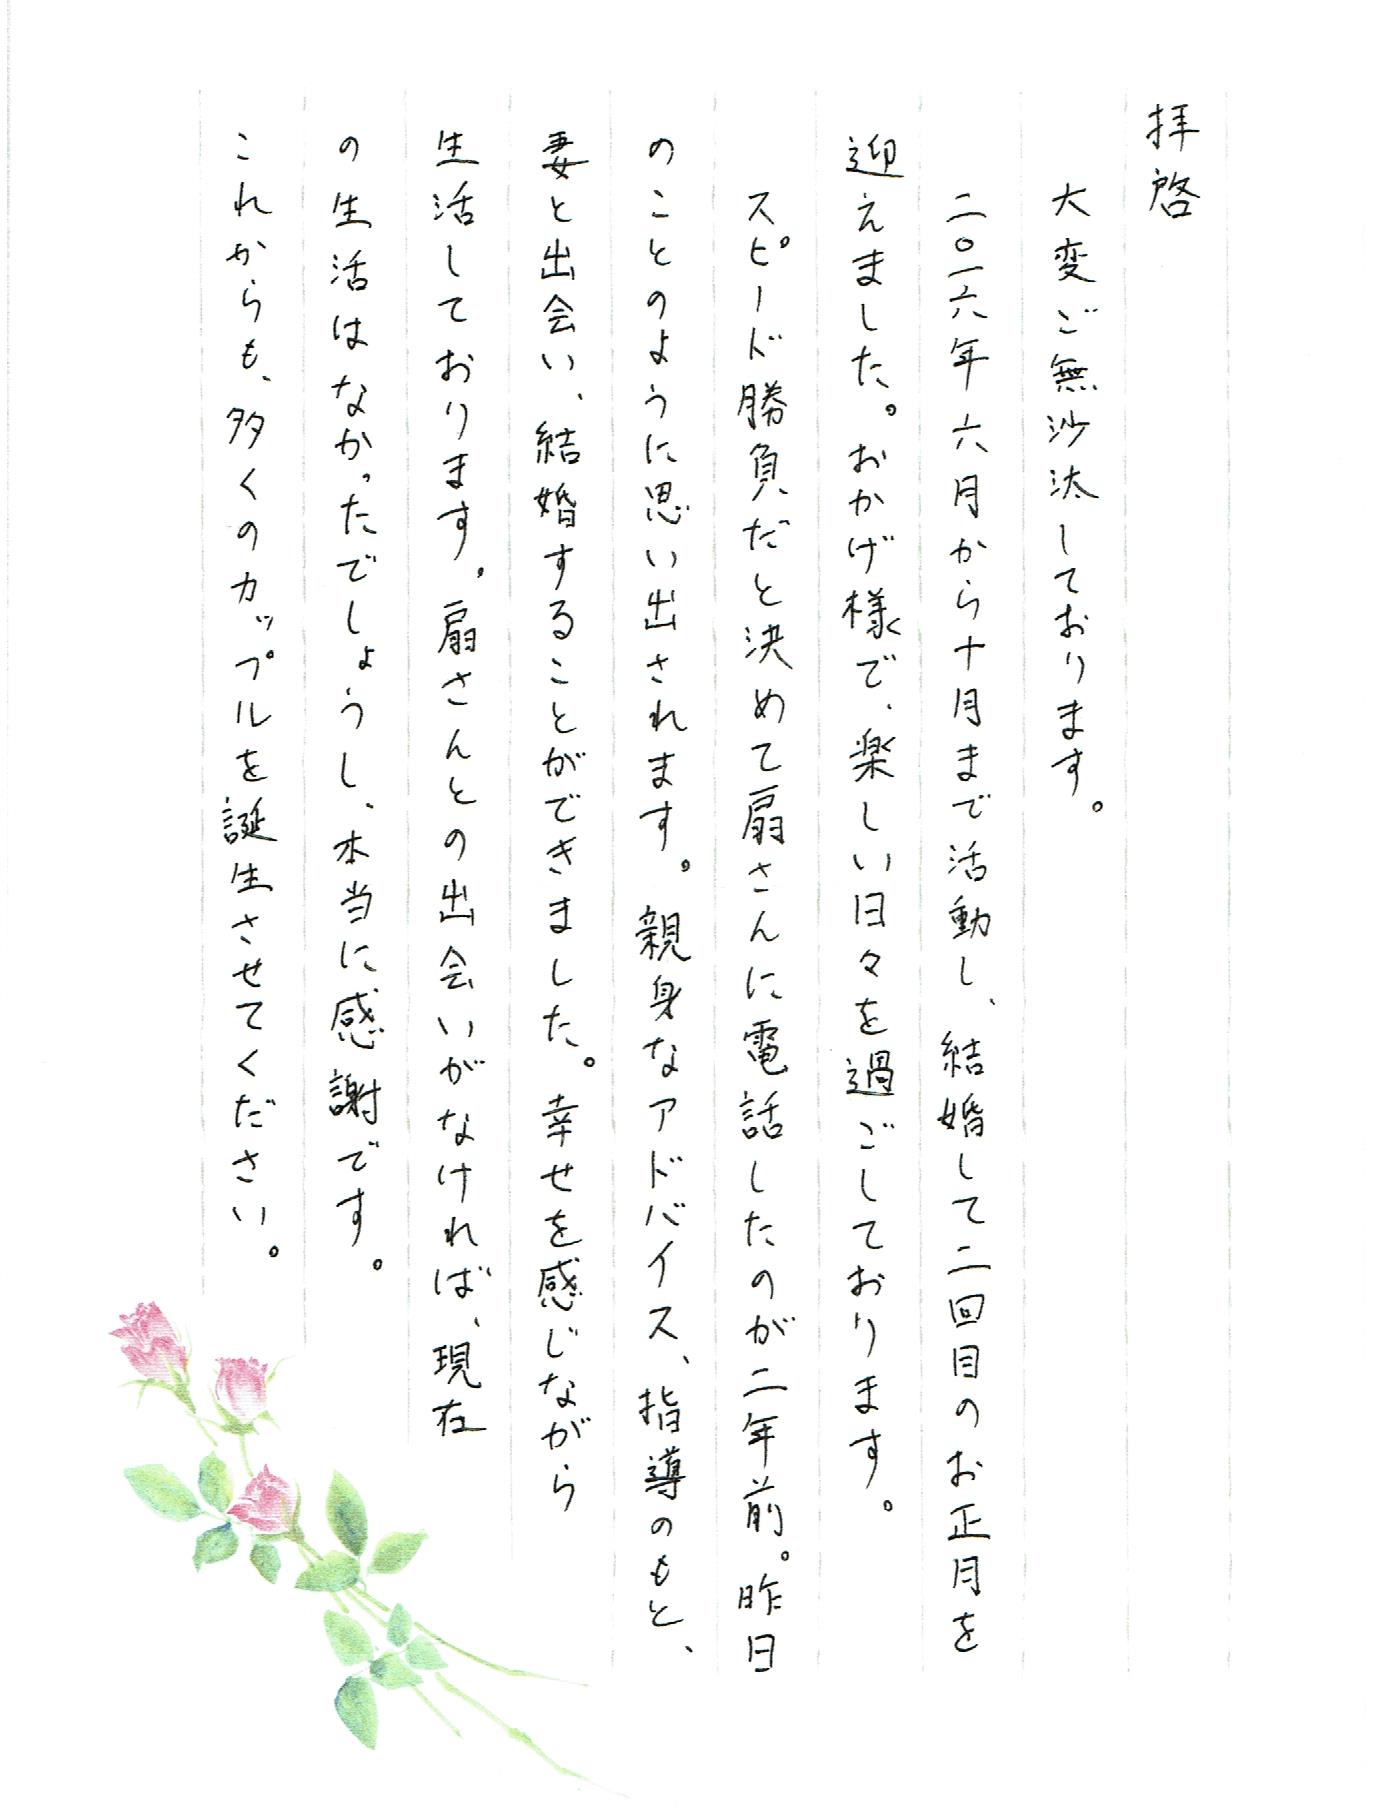 拝啓
大変ご無沙汰しております。
二〇一六年六月から十月まで活動し、結婚して二回目のお正月を
迎えました。おかげ様で、楽しい日々を過ごしております。
スピード勝負だと決めて扇さんに電話したのが二年前。昨日
のことのように思い出されます。親身なアドバイス、指導のもと、
妻と出会い、結婚することができました。幸せを感じながら
生活しております。扇さんとの出会いがなければ、現在
の生活はなかったでしょうし、本当に感謝です。
これからも、多くのカップルを誕生させてください。